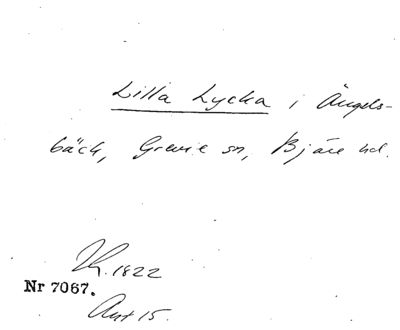 Lilla Lycka i Ängels-
bäck, Grevie sn, Bjäre hd.
1822
Nr 7067.
Ant 15.